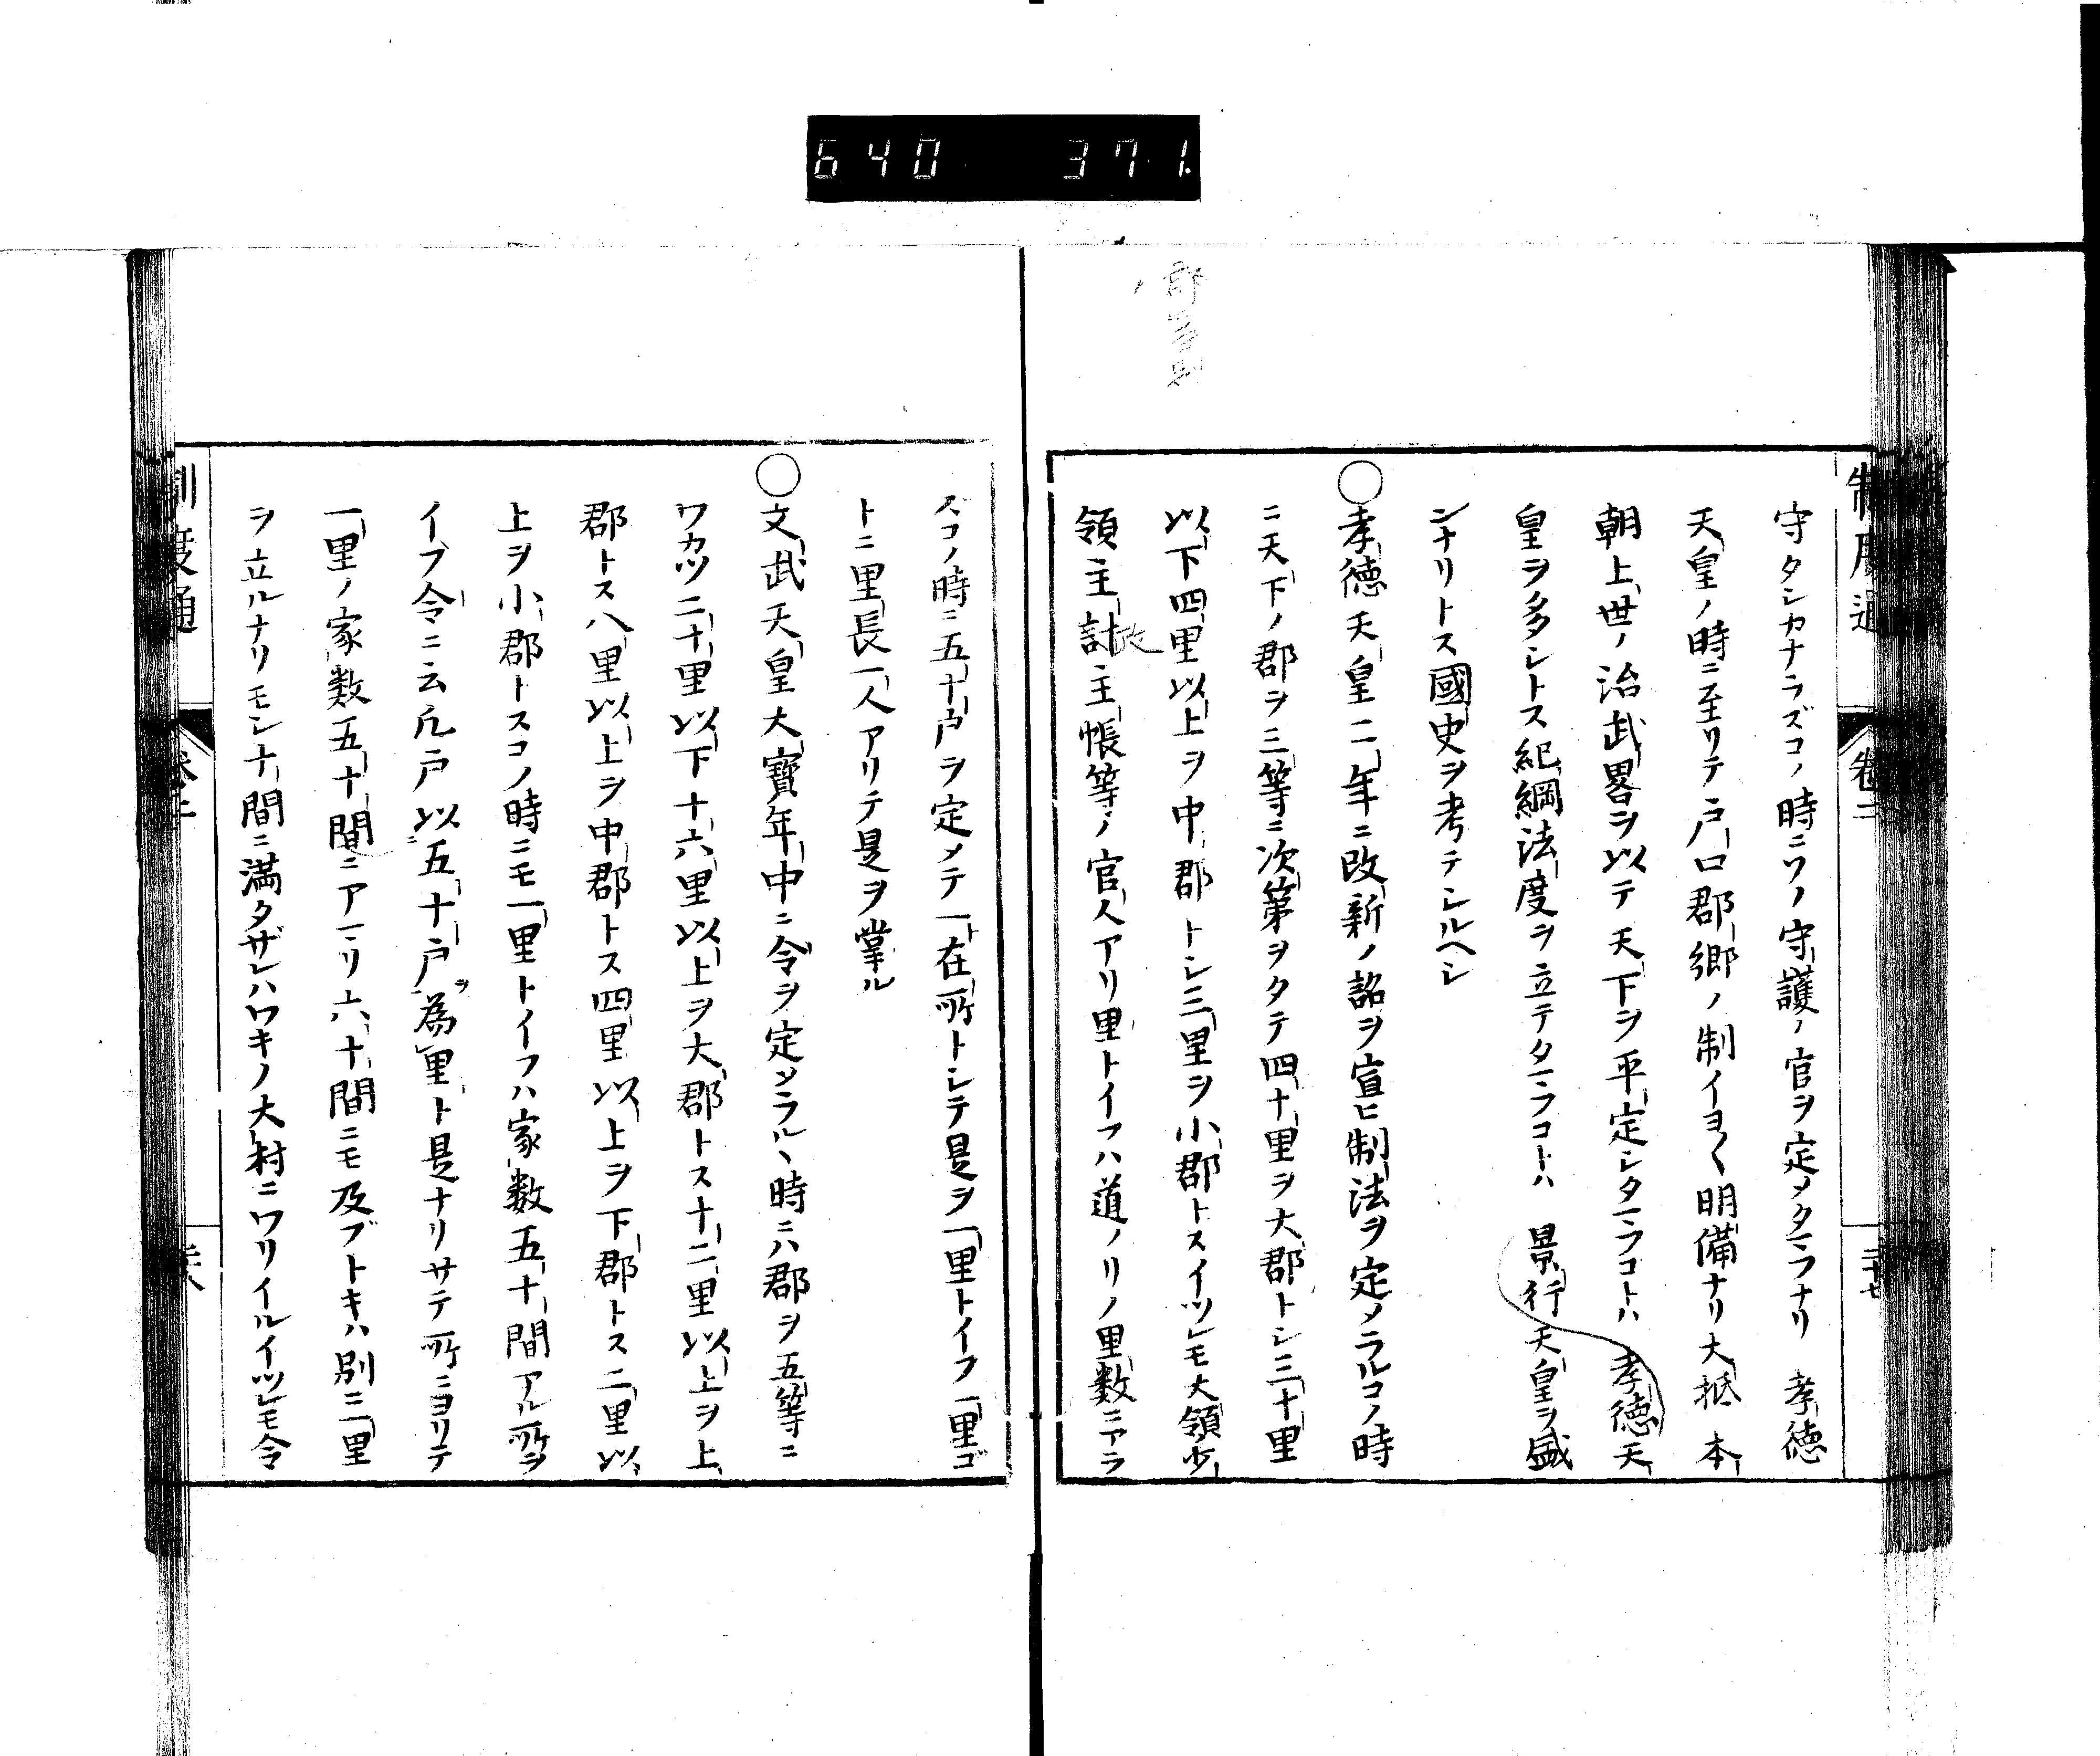 640 371
制度通 卷二 二十七
守タシカナラズコノ時ニワノ守護ノ官ヲ定メタマフナリ 孝徳
天皇ノ時ニ至リテ戸口郡郷ノ制イヨ〱明備ナリ大抵本
朝上世ノ治武畧ヲ以テ天下ヲ平定シタマフコトハ 孝徳天
皇ヲ多シトス紀綱法度ヲ立テタマフコトハ 景行天皇ヲ盛
ンナリトス國史ヲ考テシルヘシ
○孝徳天皇二年ニ改新ノ詔ヲ宣ヒ制法ヲ定メラルコノ時
ニ天下ノ郡ヲ三等ニ次第ヲタテ四十里ヲ大郡トシ三十里
以下四里以上ヲ中郡トシ三里ヲ小郡トスイツレモ大領少
領主討主帳等ノ官人アリ里トイフハ道ノリノ里数ニアラ
政
ズコノ時ニ五十戸ヲ定メテ一ト在所トシテ是ヲ一里トイフ一里ゴ
トニ里長一人アリテ是ヲ掌ル
○文武天皇大寳年中ニ令ヲ定メラルヽ時ニハ郡ヲ五等ニ
ワカツ二十里以下十六里以上ヲ大郡トス十二里以上ヲ上
郡トス八里以上ヲ中郡トス四里以上ヲ下郡トス二里以
上ヲ小郡トスコノ時ニモ一里トイフハ家数五十間アル所ヲ
イフ令ニ云凡戸以五十戸ヲ為里ト是ナリサテ所ニヨリテ
一里ノ家数五十間ニアマリ六十間ニモ及ブトキハ別ニ一里
ヲ立ルナリモシ十間ニ満タザレハワキノ大村ニワリイルイツレモ令
制度通 卷二